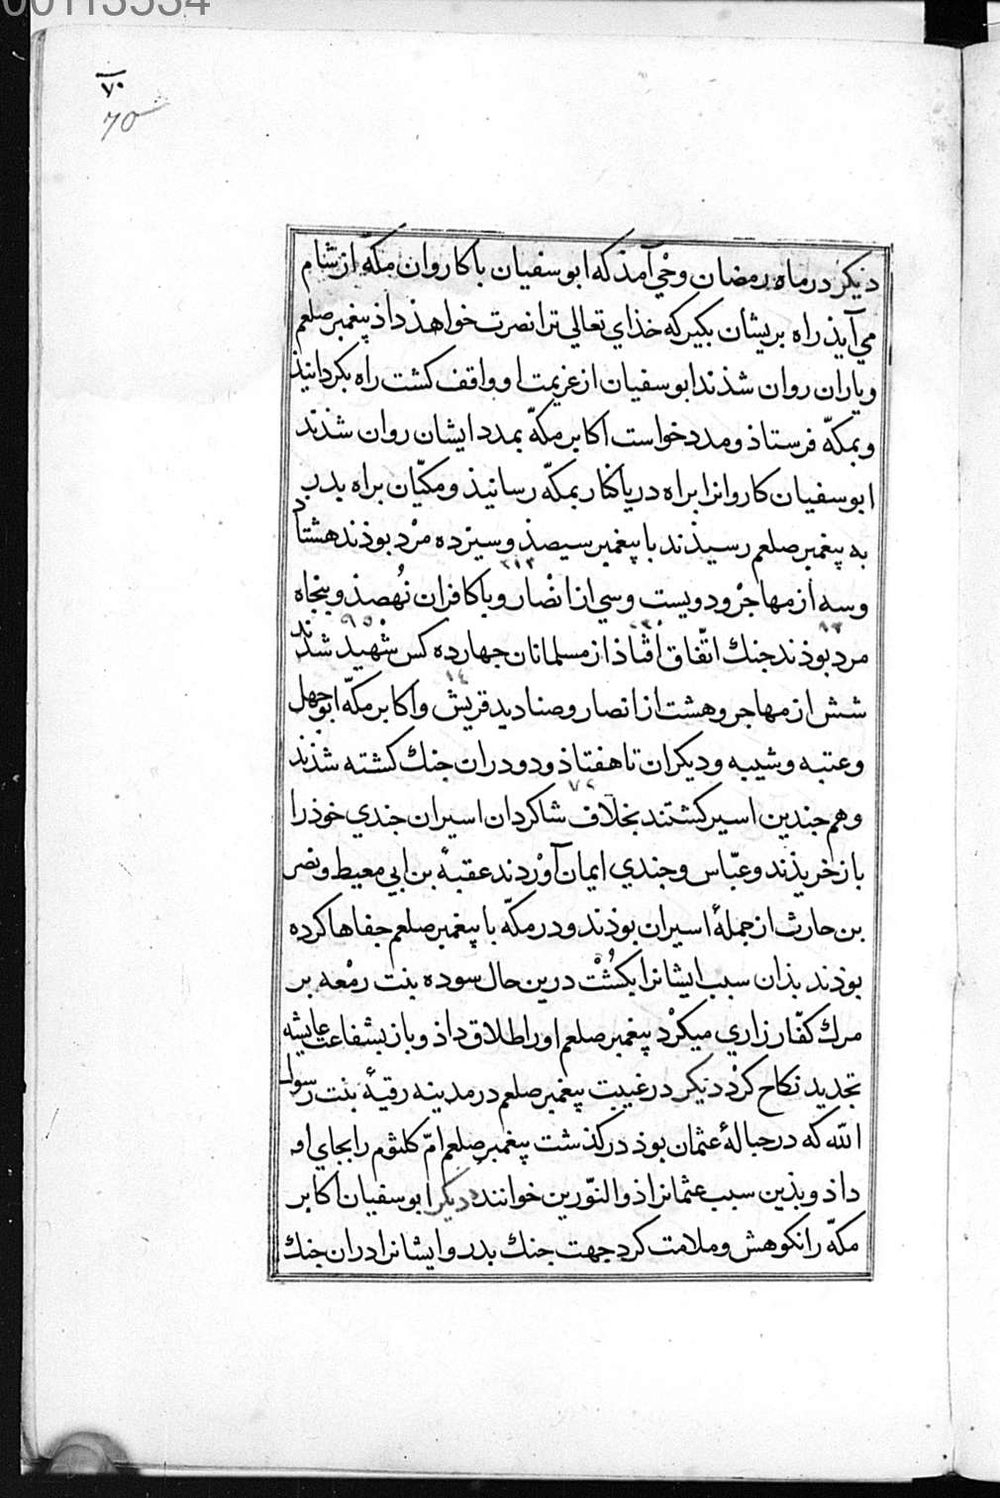 00113534
۷۰
70
دیکر در ماه رمضان وحْي آمذ که ابو سفیان با کاروان مکّه از شام
مي آیذ راه بریشان بکیر که خذاي تعالي ترا نصرت خواهذ داذ پیغمبر صلعم
و یاران روان شذند ابو سفیان از عزیمت او واقف کشت راه بکردانیذ
و بمکّه فرستاذ و مدد خواست اکابر مکّه بمدد ایشان روان شذند
ابو سفیان کاروانرا براه دریا کنار بمکّه رسانیذ و مکیّان براه بدر
به پیغمبر صلعم رسیذند با پیغمبر سیصذ و سیزده مرْد بوذند هشتاد
۳۱۳
و سه از مهاجرْ و دویست و سي از انصْار و با کافران نُهصذ و پنجاه
۸۳ ۲۳۰ ۹۵۰
مرد بوذند جنك اتّفاق افْتاذ از مسلمانان جهارده کس شْهید شدند
۱٤
شش از مهاجر و هشت از انصار و صنادید قریش و اکابر مکّه ابو جهل
و عتبه و شیبه و دیکران تا هفتاذ و دو دران جنك کشته شذند
۷۲
و هم جندین اسیر کشتند بخلاف شاکردان اسیران جندي خوذ را
باز خریذند و عبّاس و جندي ایمان آوْردند عقبهٔ بن ابي معیط و نضر
بن حارث از جملهٔ اسیران بوذند و در مکّه با پیغمبر صلعم جفاها کرده
بوذند بذان سبب ایشانرا بکُشتْ درین حال سوده بنت رمْعه بر
مرك کفّار زاري میکرْد پیغمبر صلعم او را طلاق داذ و باز بشفاعت عایشه
تجدید نکاح کرْد دیکر در غیبت پیغمبر صلعم در مدینه رقیهٔ بنت رسول
الله که در حبالهٔ عثمان بوذ در کذشت پیغمبر صلعم امّ کلثوم را بجاي او
داذ و بذین سبب عثمانرا ذوالنّورین خوانند دیکر ابو سفیان اکابر
مکّه را نکوهش و ملامت کرد جهت جنك بدر و ایشانرا دران جنك